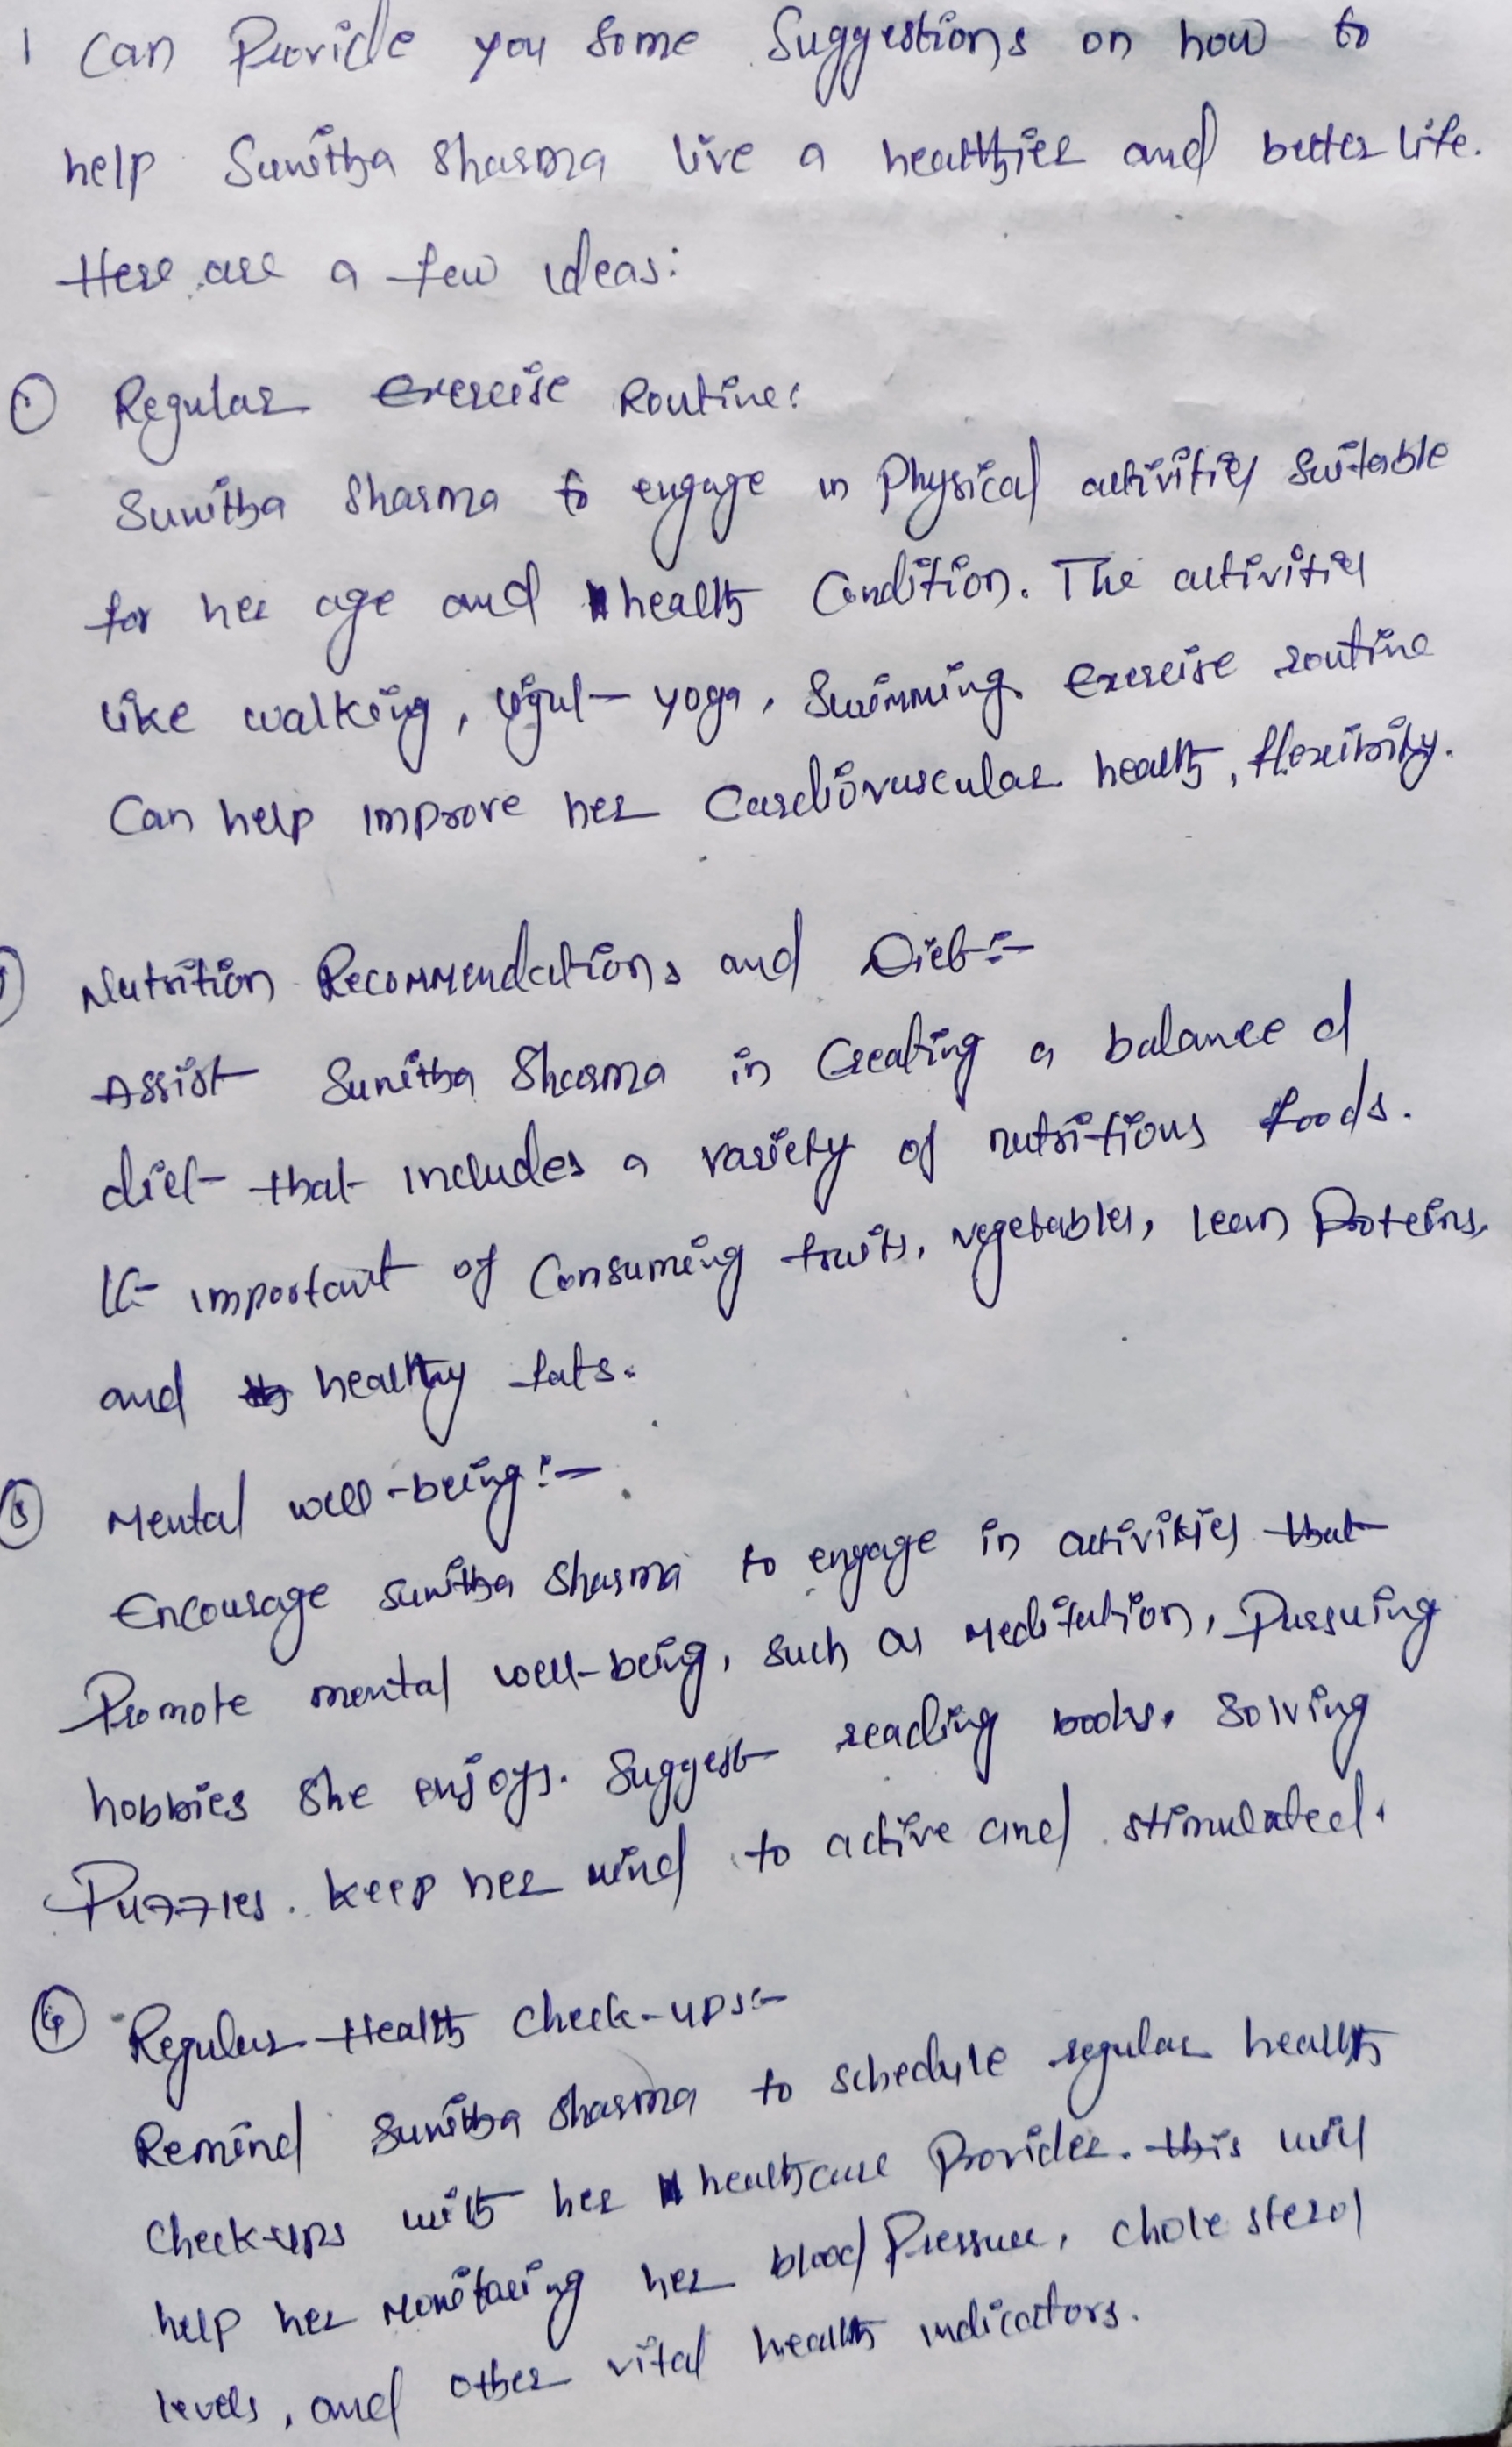 I can Provide you some Suggestions on how to
help Sunitha Sharma live a healthier and better life.
Here are a few ideas:
① Regular Exercise Routine:
Sunitha Sharma to engage in Physical activities suitable
for her age and health Condition. The activities
like walking, yoga, Swimming. Exercise routine
Can help improve her Cardiovascular health, flexibility.
Nutrition Recommendations and Diet:-
Assist Sunitha Sharma in Creating a balance d
diet that includes a variety of nutritions foods.
It important of Consuming fruits, vegetables, lean Proteins,
and healthy fats.
③ Mental well-being:-
Encourage Sunitha Sharma to engage in activities that
Promote mental well-being, such as meditation, Pursuing
hobbies she enjoys. Suggest reading books, solving
Puzzles. keep her mind to active and stimulated.
④ Regular Health check-ups:-
Remind Sunitha Sharma to schedule regular health
check-ups with her healthcare Provider. this will
help her monitoring her blood Pressure, chole sterol
levels, and other vital health indicators.